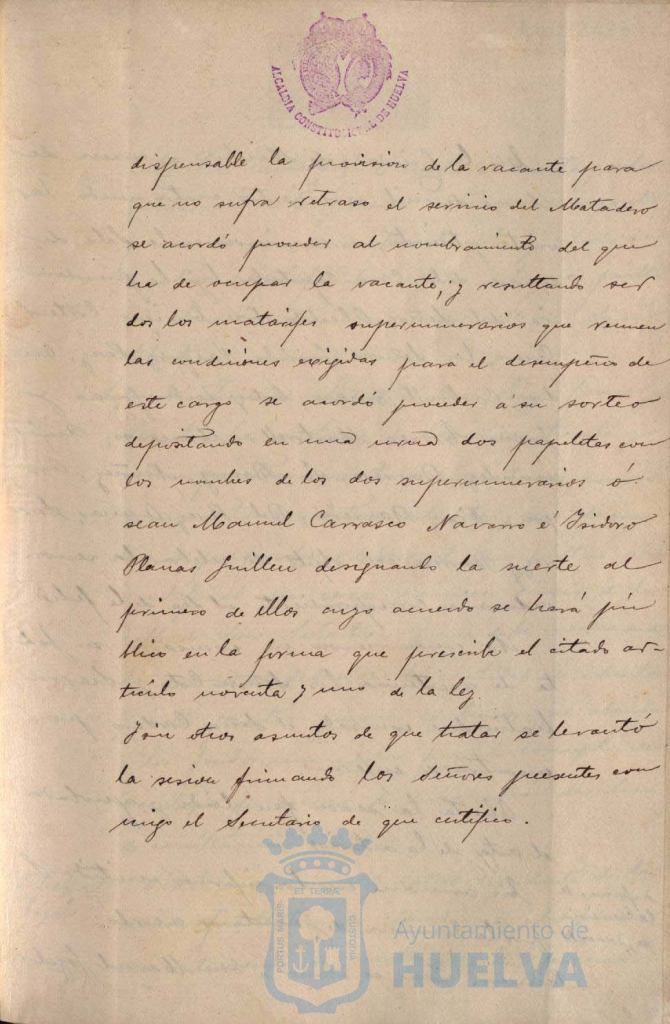 ALCALDIA CONSTITUCIONAL DE HUELVA
dispensable la provision de la vacante para
que no sufra retraso el servicio del Matadero
se acordó proceder al nombramiento del que
ha de ocupar la vacante; y resultando ser
dos los matarifes supernumerarios que reunen
las condiciones exigidas para el desempeño de
este cargo se acordó proceder á su sorteo
depositando en una urna dos papeletas con
los nombres de los dos supernumerarios ó
sean Manuel Carrasco Navarro é Isidoro
Planas Guillen designando la suerte al
primero de ellos cuyo acuerdo se hará pú
blico en la forma que prescribe el citado ar-
tículo noventa y uno de la ley.
Y sin otros asuntos de que tratar se levantó
la sesion firmando los Señores presentes con
migo el Secretario de que certifico.
ET TERRAE
PORTUS MARIS
CUSTODIA
Ayuntamiento de
HUELVA